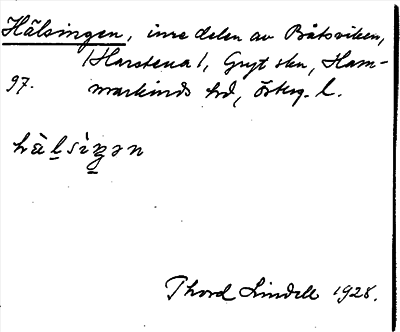 Hälsingen, inre delen av Båtsviken,
(Harstena), Gryt skn, Ham-
97. markinds hd, Österg. l.
hàlsìŋən
Thord Lindell 1928.